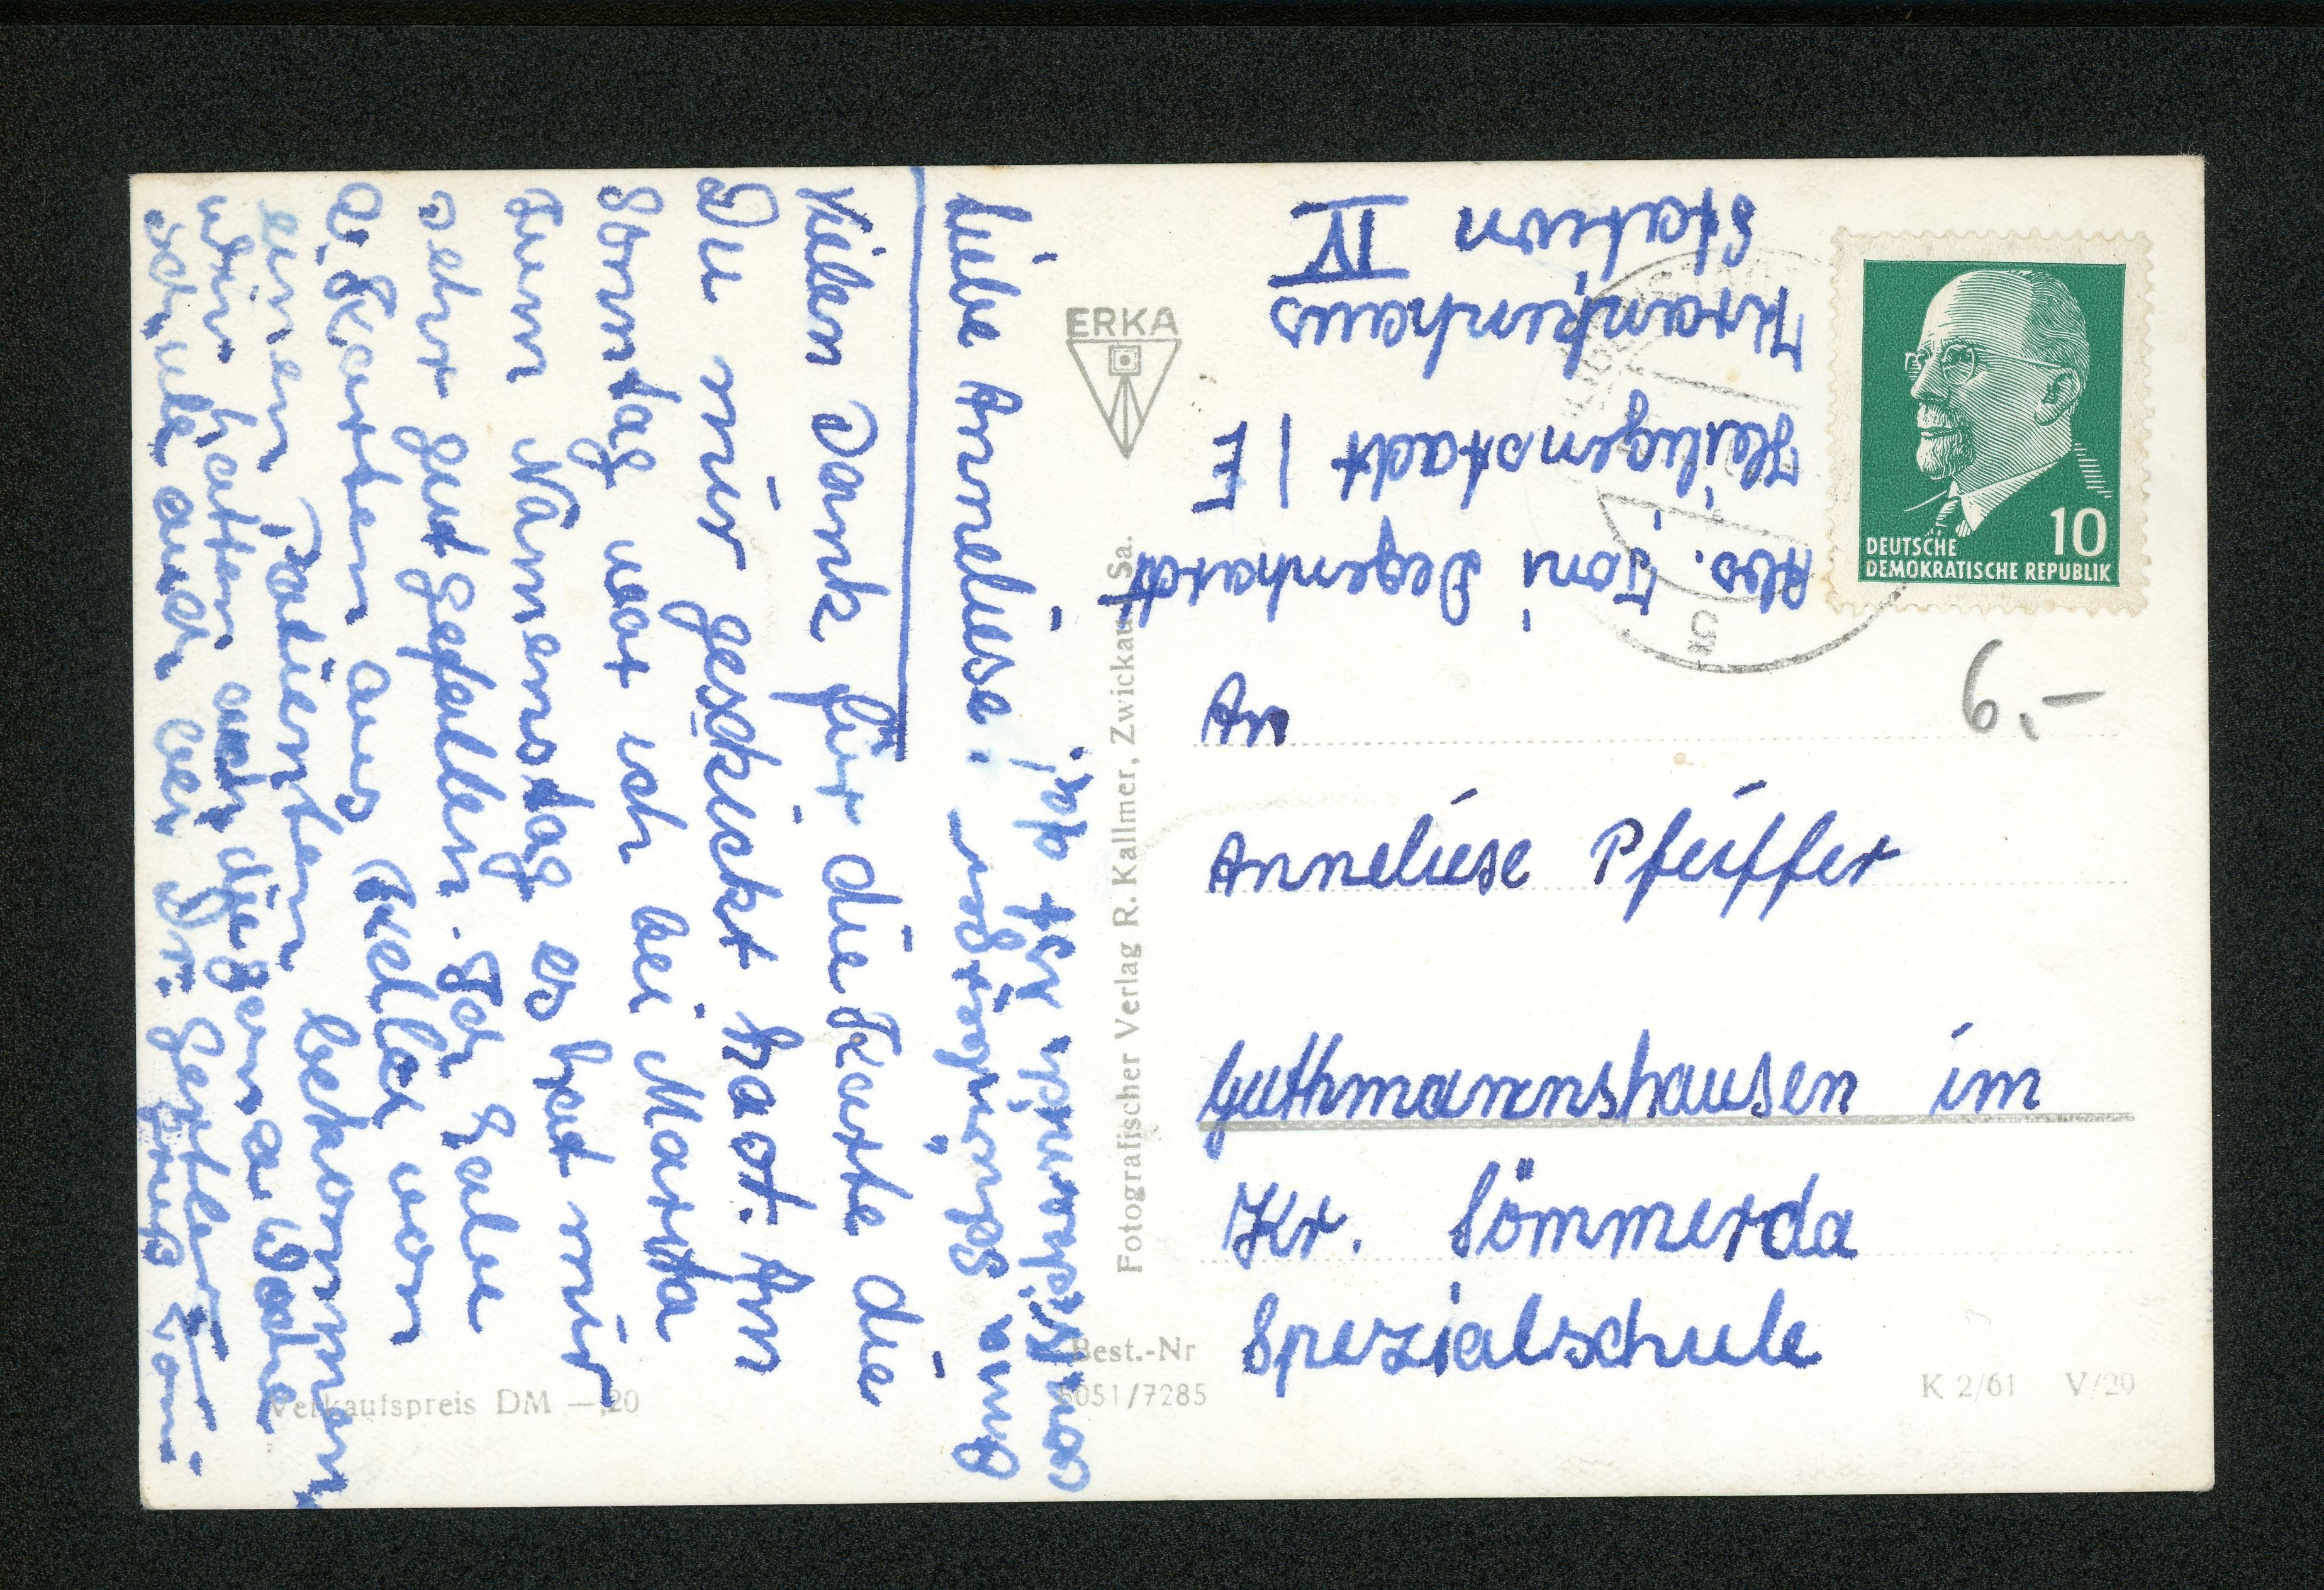 Abs. Toni Degenhardt
Heiligenstadt / E
Krankenhaus
Station IV
ERKA
DEUTSCHE
DEMOKRATISCHE REPUBLIK
10
6,-
An
Anneliese Pfeiffer
Guthmannshausen im
Kr. Sömmerda
Spezialschule
Liebe Anneliese!
Vielen Dank für die Karte die
Du mir geschickt hast. Am
Sonntag war ich bei Marta
zum Namenstag es hat mir
sehr gut gefallen. Ich habe
2 Karten aus von
einen Patienten bekommen
wir hatten auch die ganze Woche
Schule auch bei Dr. Gertler
Gruß Toni
Fotografischer Verlag R. Kallmer, Zwickau Sa.
Best.-Nr
6051/7285
Verkaufspreis DM —,20
K 2/61 V/29